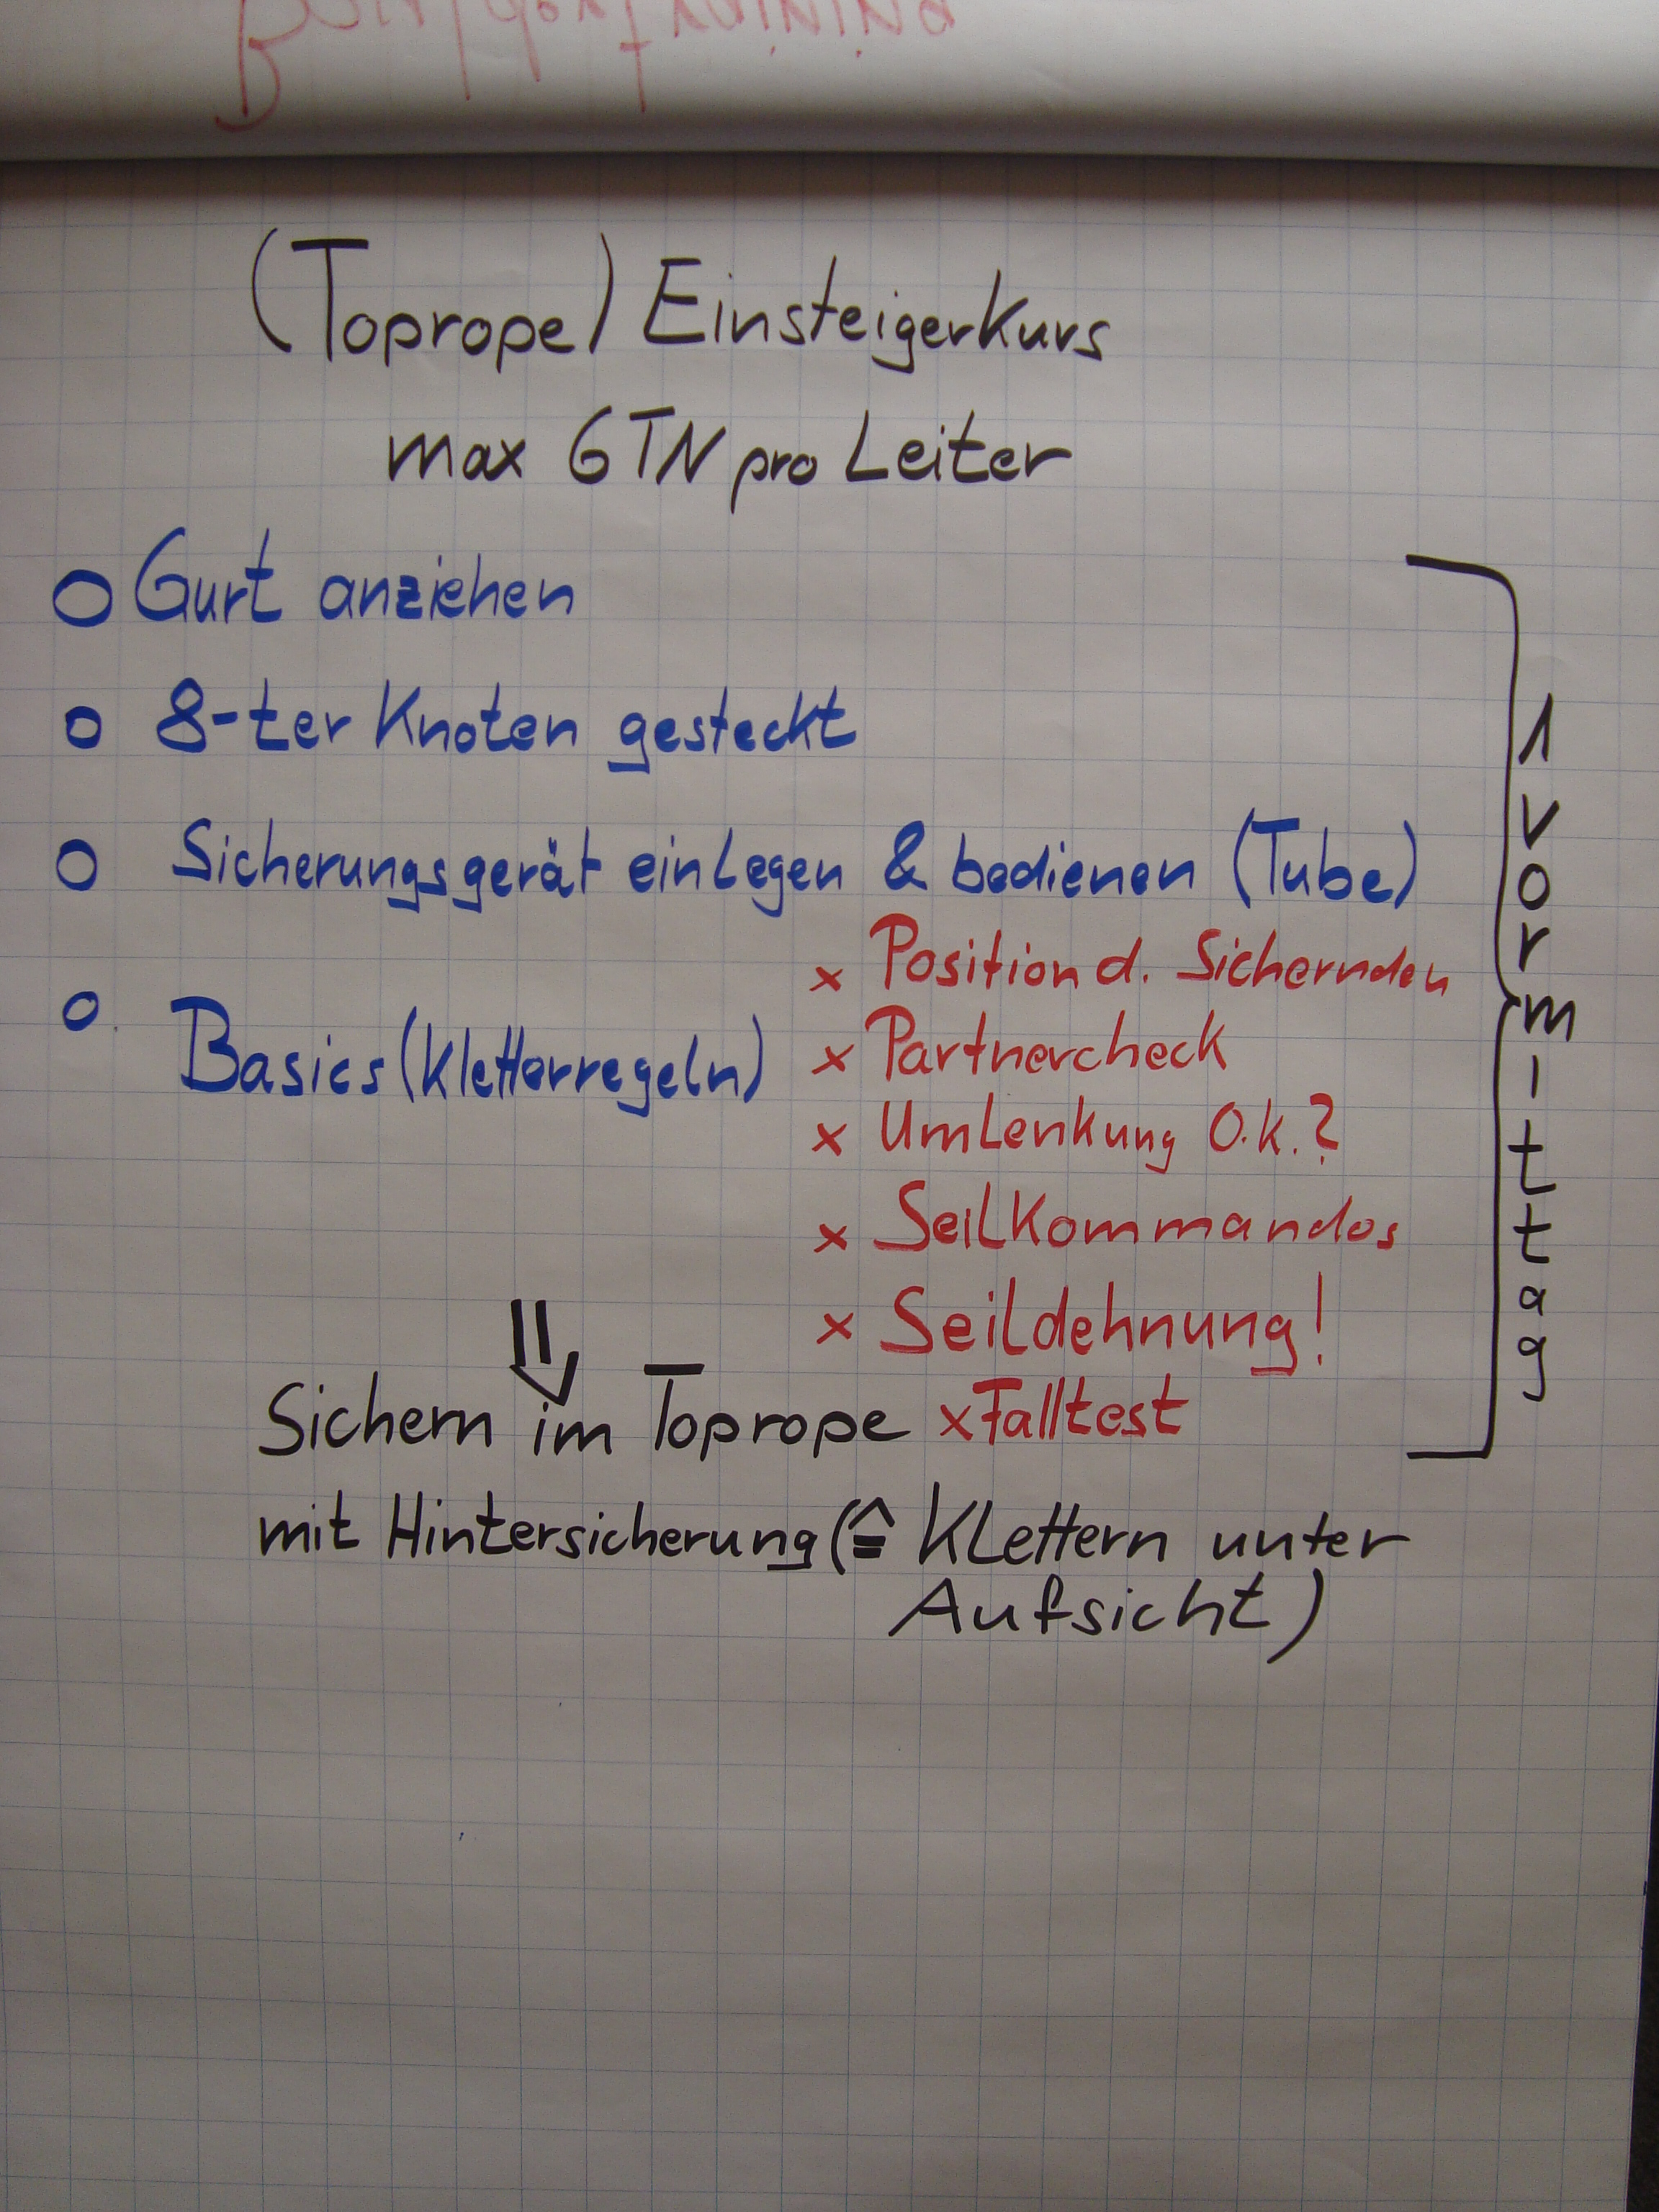 (Toprope) Einsteigerkurs
max 6 TN pro Leiter
O Gurt anziehen
O 8-ter Knoten gesteckt
O Sicherungsgerät einlegen & bedienen (Tube)
O Basics (Kletterregeln)
x Position d. Sichernden
x Partnercheck
x Umlenkung O.k.?
x Seilkommandos
x Seildehnung!
Sichern im Toprope x Falltest
mit Hintersicherung (≙ Klettern unter
Aufsicht)
1 vormittag